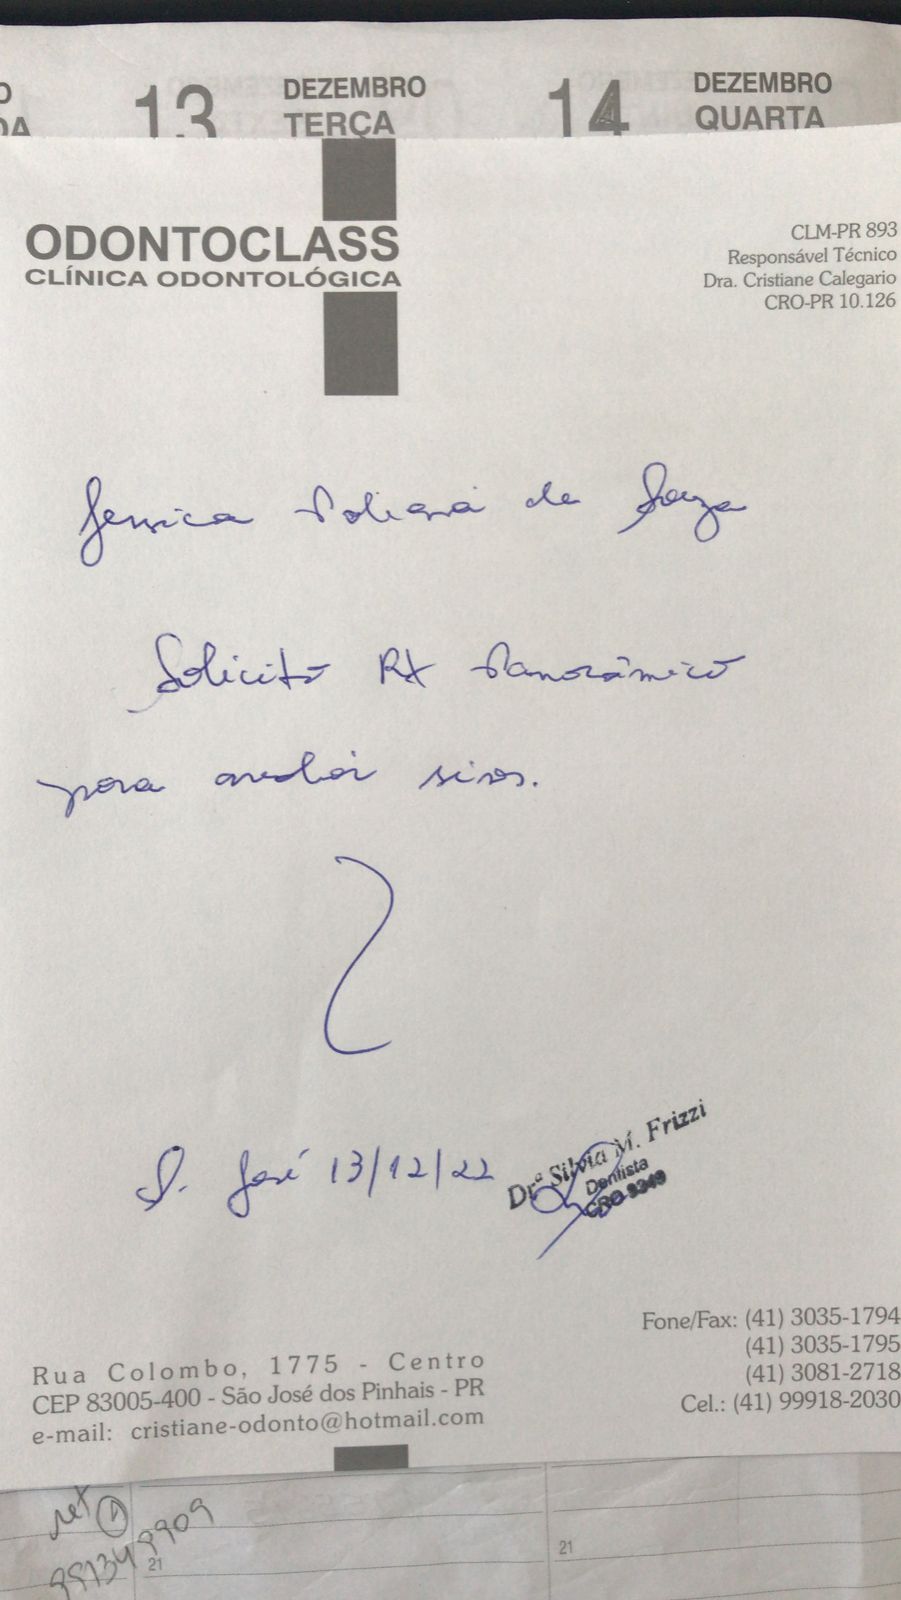 13 DEZEMBRO
TERÇA
14 DEZEMBRO
QUARTA
ODONTOCLASS
CLÍNICA ODONTOLÓGICA
CLM-PR 893
Responsável Técnico
Dra. Cristiane Calegario
CRO-PR 10.126
Jessica de Souza
Solicito RX Panorâmico
para avaliar sisos.
S. José 13/12/22
Drª Silvia M. Frizzi
Dentista
CRO 9349
Fone/Fax: (41) 3035-1794
(41) 3035-1795
(41) 3081-2718
Cel.: (41) 99918-2030
Rua Colombo, 1775 - Centro
CEP 83005-400 - São José dos Pinhais - PR
e-mail: cristiane-odonto@hotmail.com
21
21